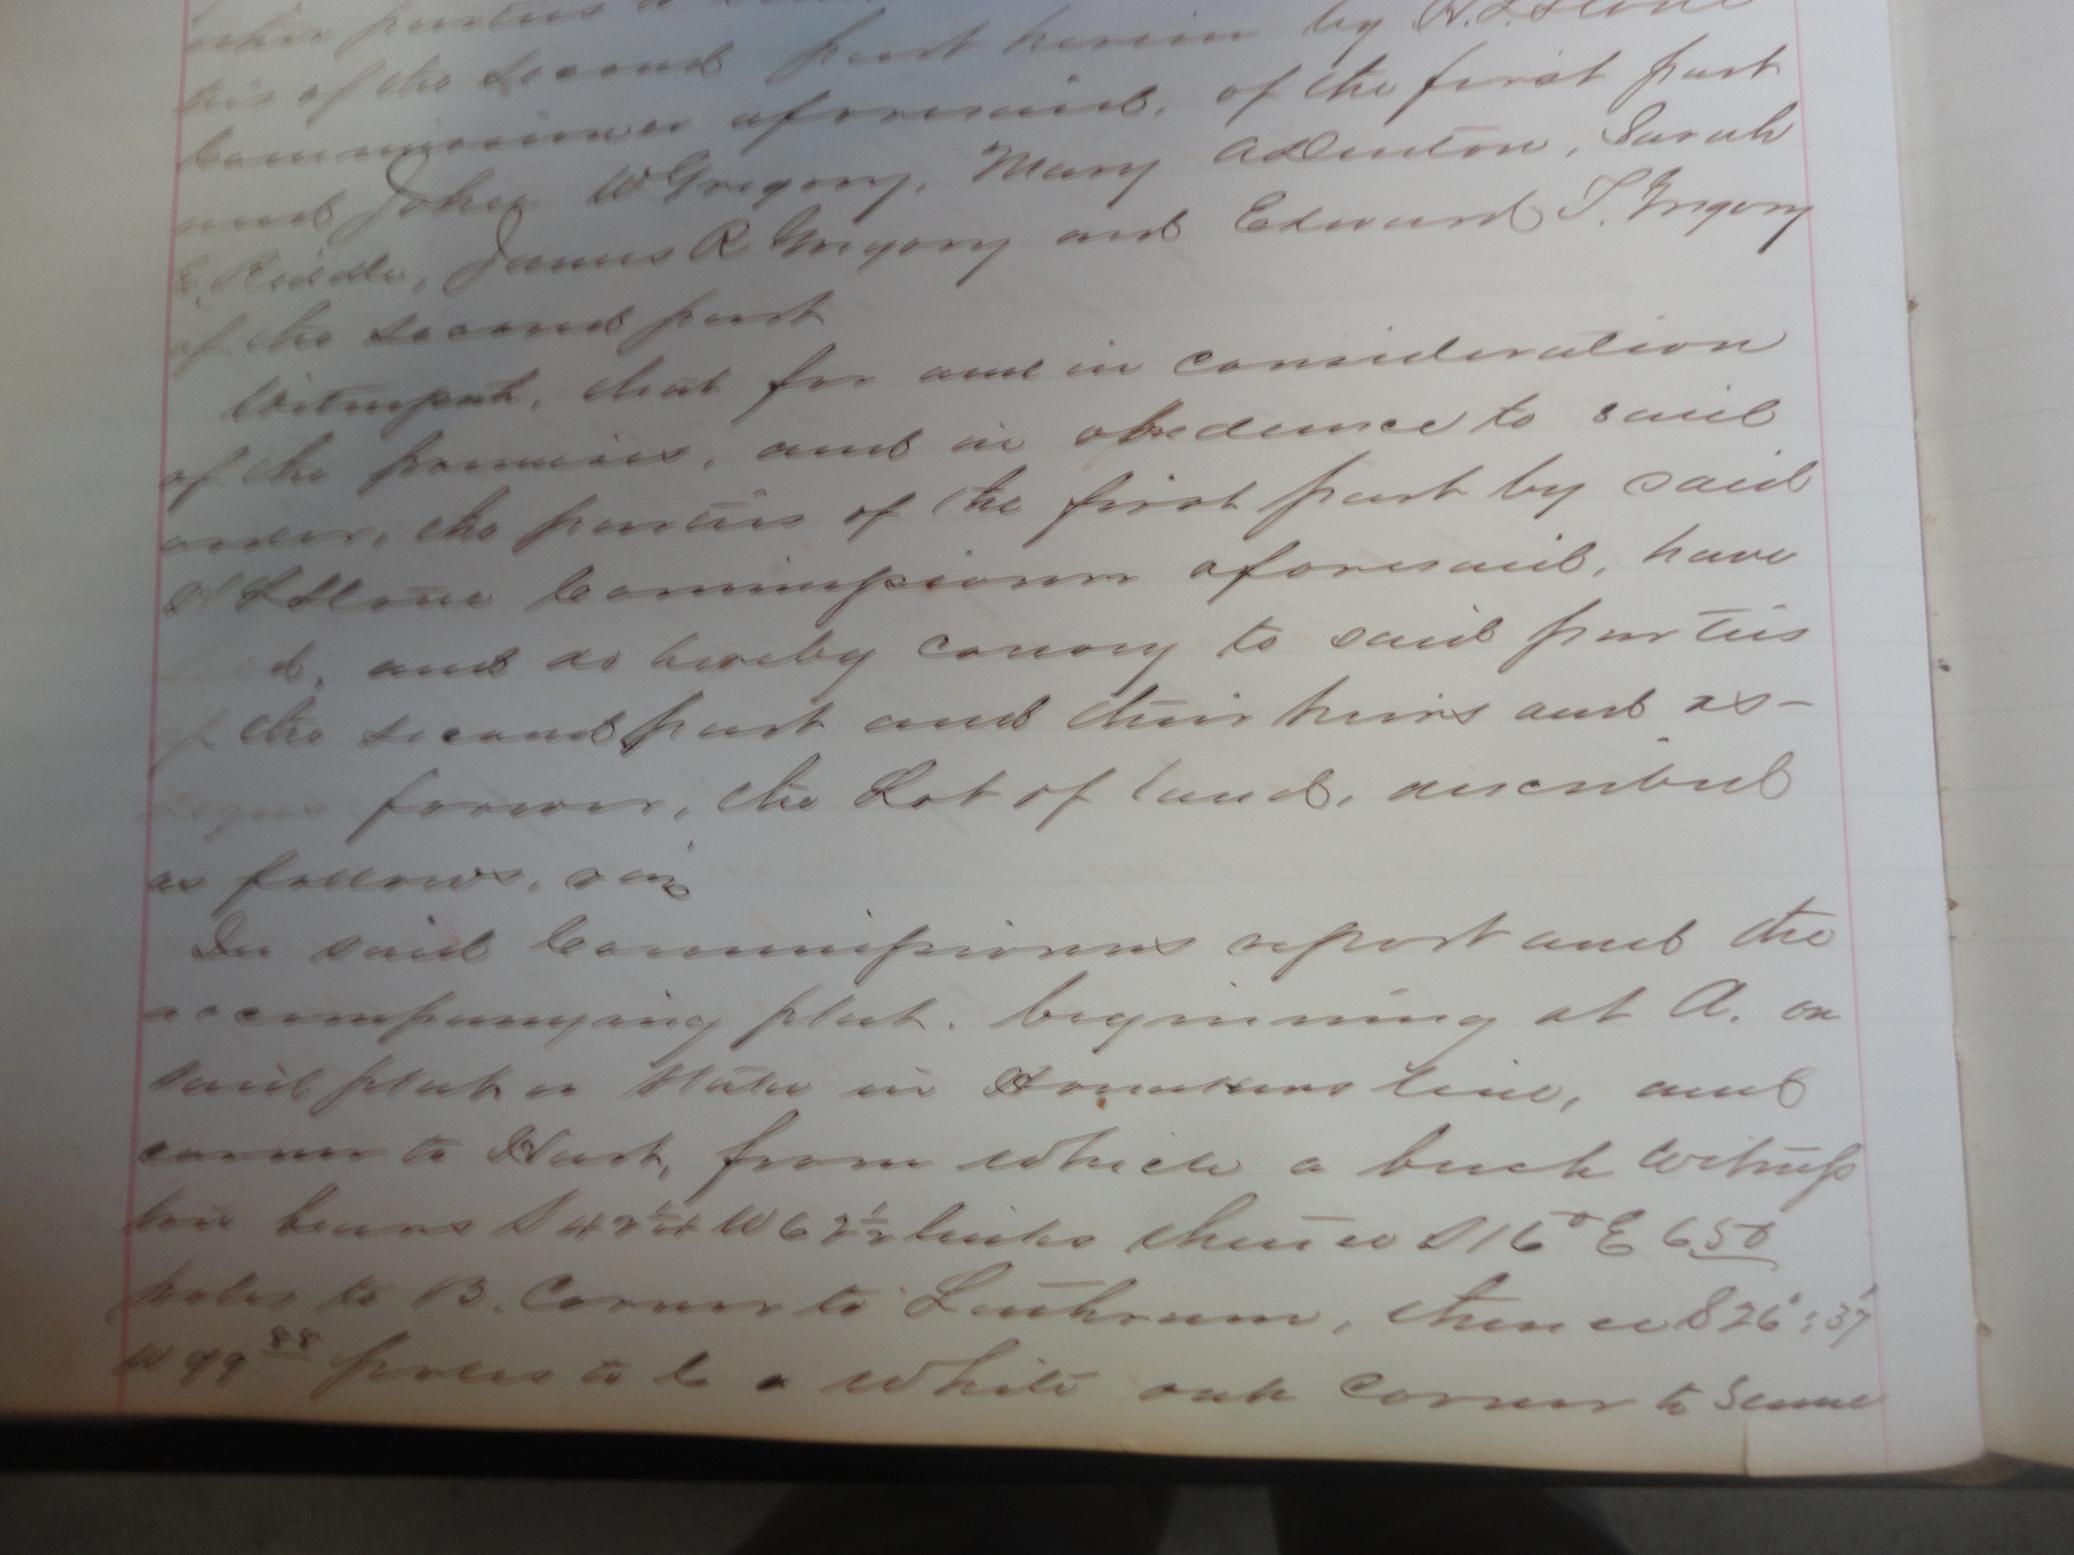 other parties
ties of the second part herein by H. L. Stone
Commissioner aforesaid, of the first part
and John W Gregory, Mary A Denton, Sarah
E. Riddle, James R Gregory and Edward T. Gregory
of the second part
Witnesseth, that for and in consideration
of the premises, and in obedience to said
order, the parties of the first part by said
H L Stone Commissioner aforesaid, have
and do hereby convey to said parties
of the second part and their heirs and as-
signs forever, the Lot of land, described
as follows, viz
In said Commissioners report and the
accompanying plat. beginning at A. on
said plat a stake in line, and
corner to Hart, from which a buck witness
tree bears S 42¼ W 62½ links thence S 16° E 6 50
poles to B. Corner to Lathram, thence S 26°:37'
W 99 88 poles to C a white oak corner to same